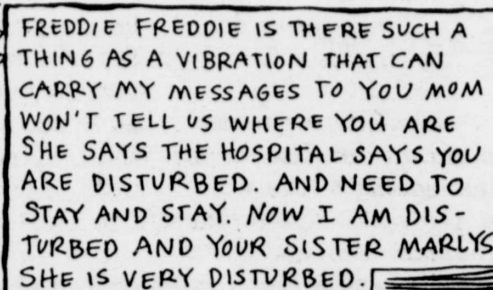 FREDDIE FREDDIE IS THERE SUCH A
THING AS A VIBRATION THAT CAN
CARRY MY MESSAGES TO YOU MOM
WON'T TELL US WHERE YOU ARE
SHE SAYS THE HOSPITAL SAYS YOU
ARE DISTURBED. AND NEED TO
STAY AND STAY. NOW I AM DIS-
TURBED AND YOUR SISTER MARLYS
SHE IS VERY DISTURBED.